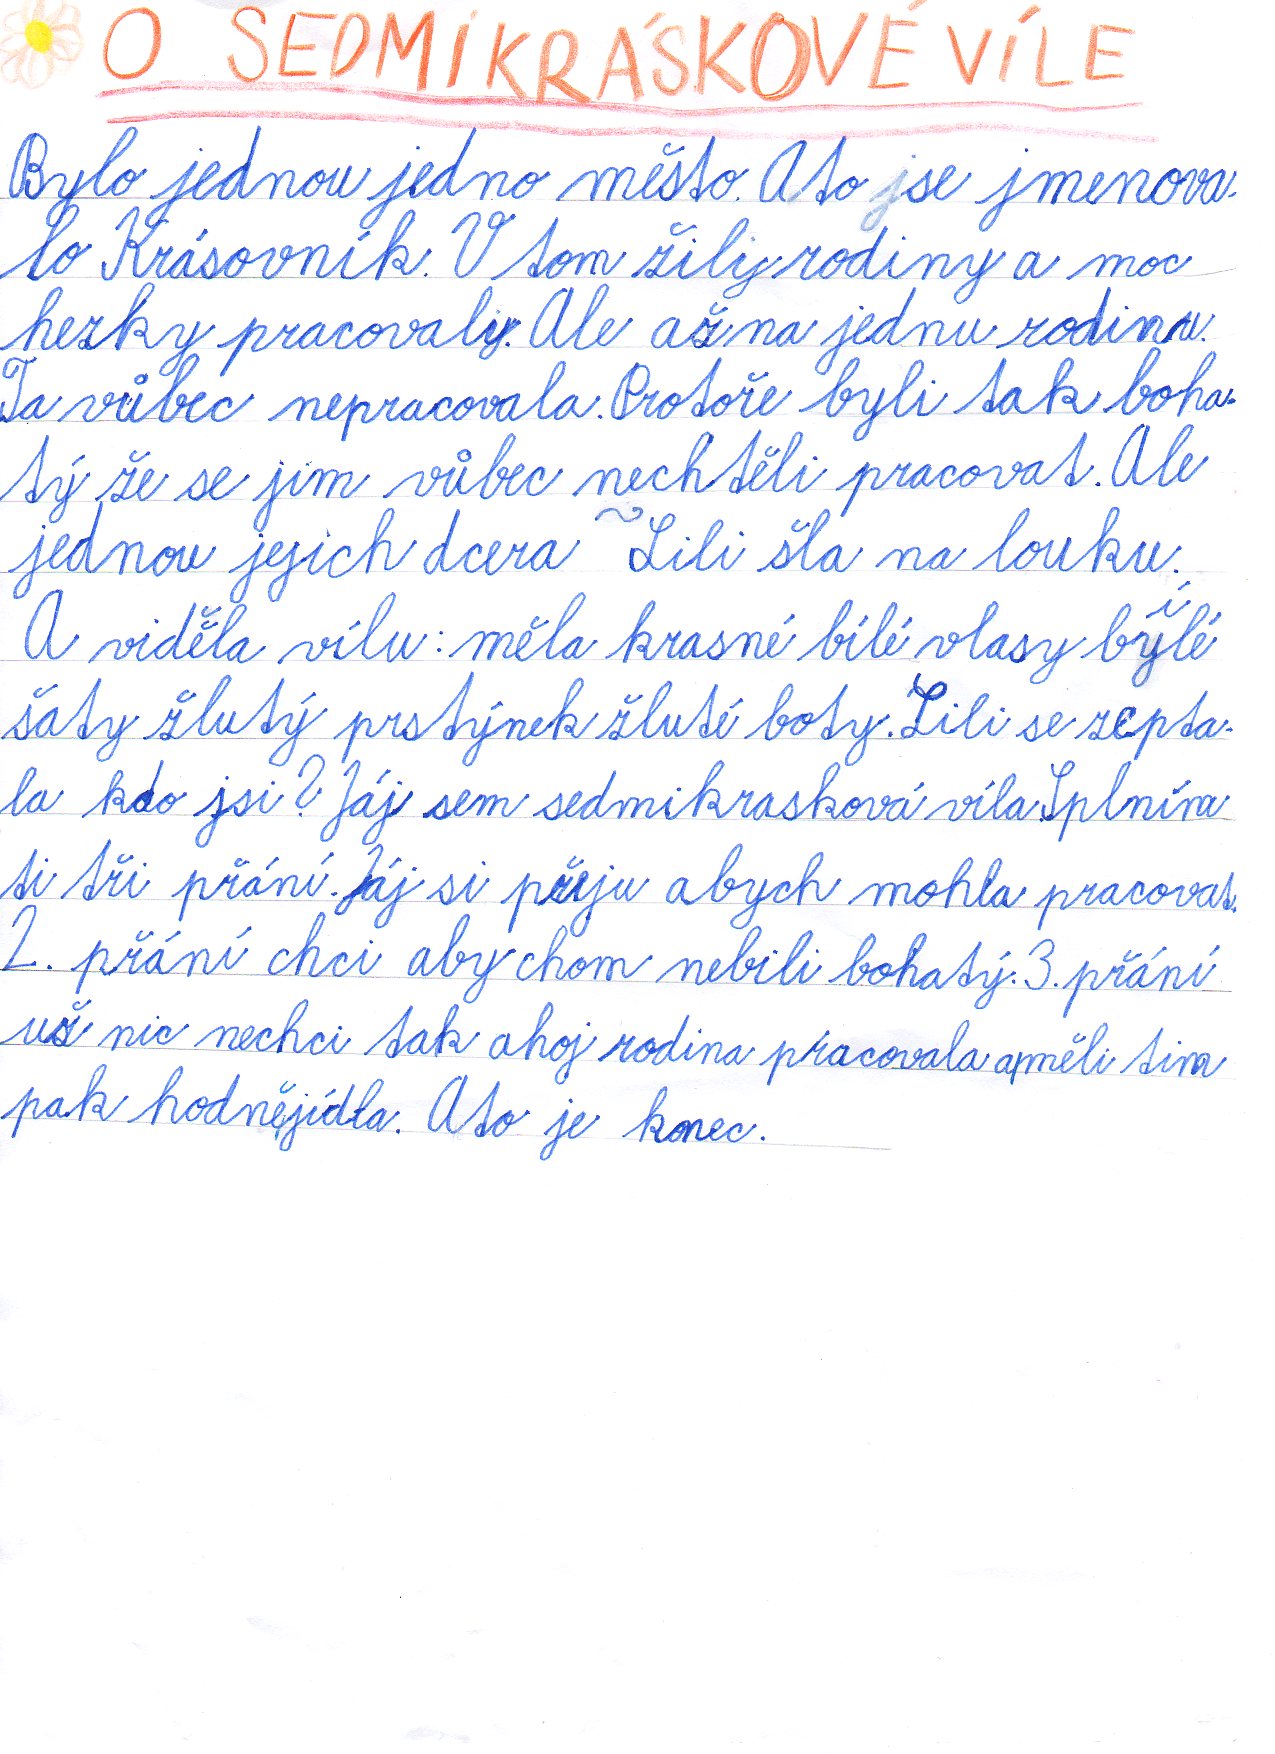 O SEDMIKRÁSKOVÉ VÍLE
Bylo jednou jedno město. A to se jmenova-
lo Krásovník. V tom žily rodiny a moc
hezky pracovaly. Ale až na jednu rodinu.
Ta vůbec nepracovala. Protože byli tak boha-
tý že se jim vůbec nechtěli pracovat. Ale
jednou jejich dcera Lili šla na louku.
A viděla vílu: měla krasné bílé vlasy bílé
šaty žlutý prstýnek žluté boty. Lili se zepta-
la kdo jsi? Jáj sem sedmikrasková víla. Splním
ti tři přání. Jáj si přeju abych mohla pracovat.
2. přání chci aby chom nebili bohatý. 3. přání
už nic nechci tak ahoj rodina pracovala a měli tim
pak hodně jídla. A to je konec.